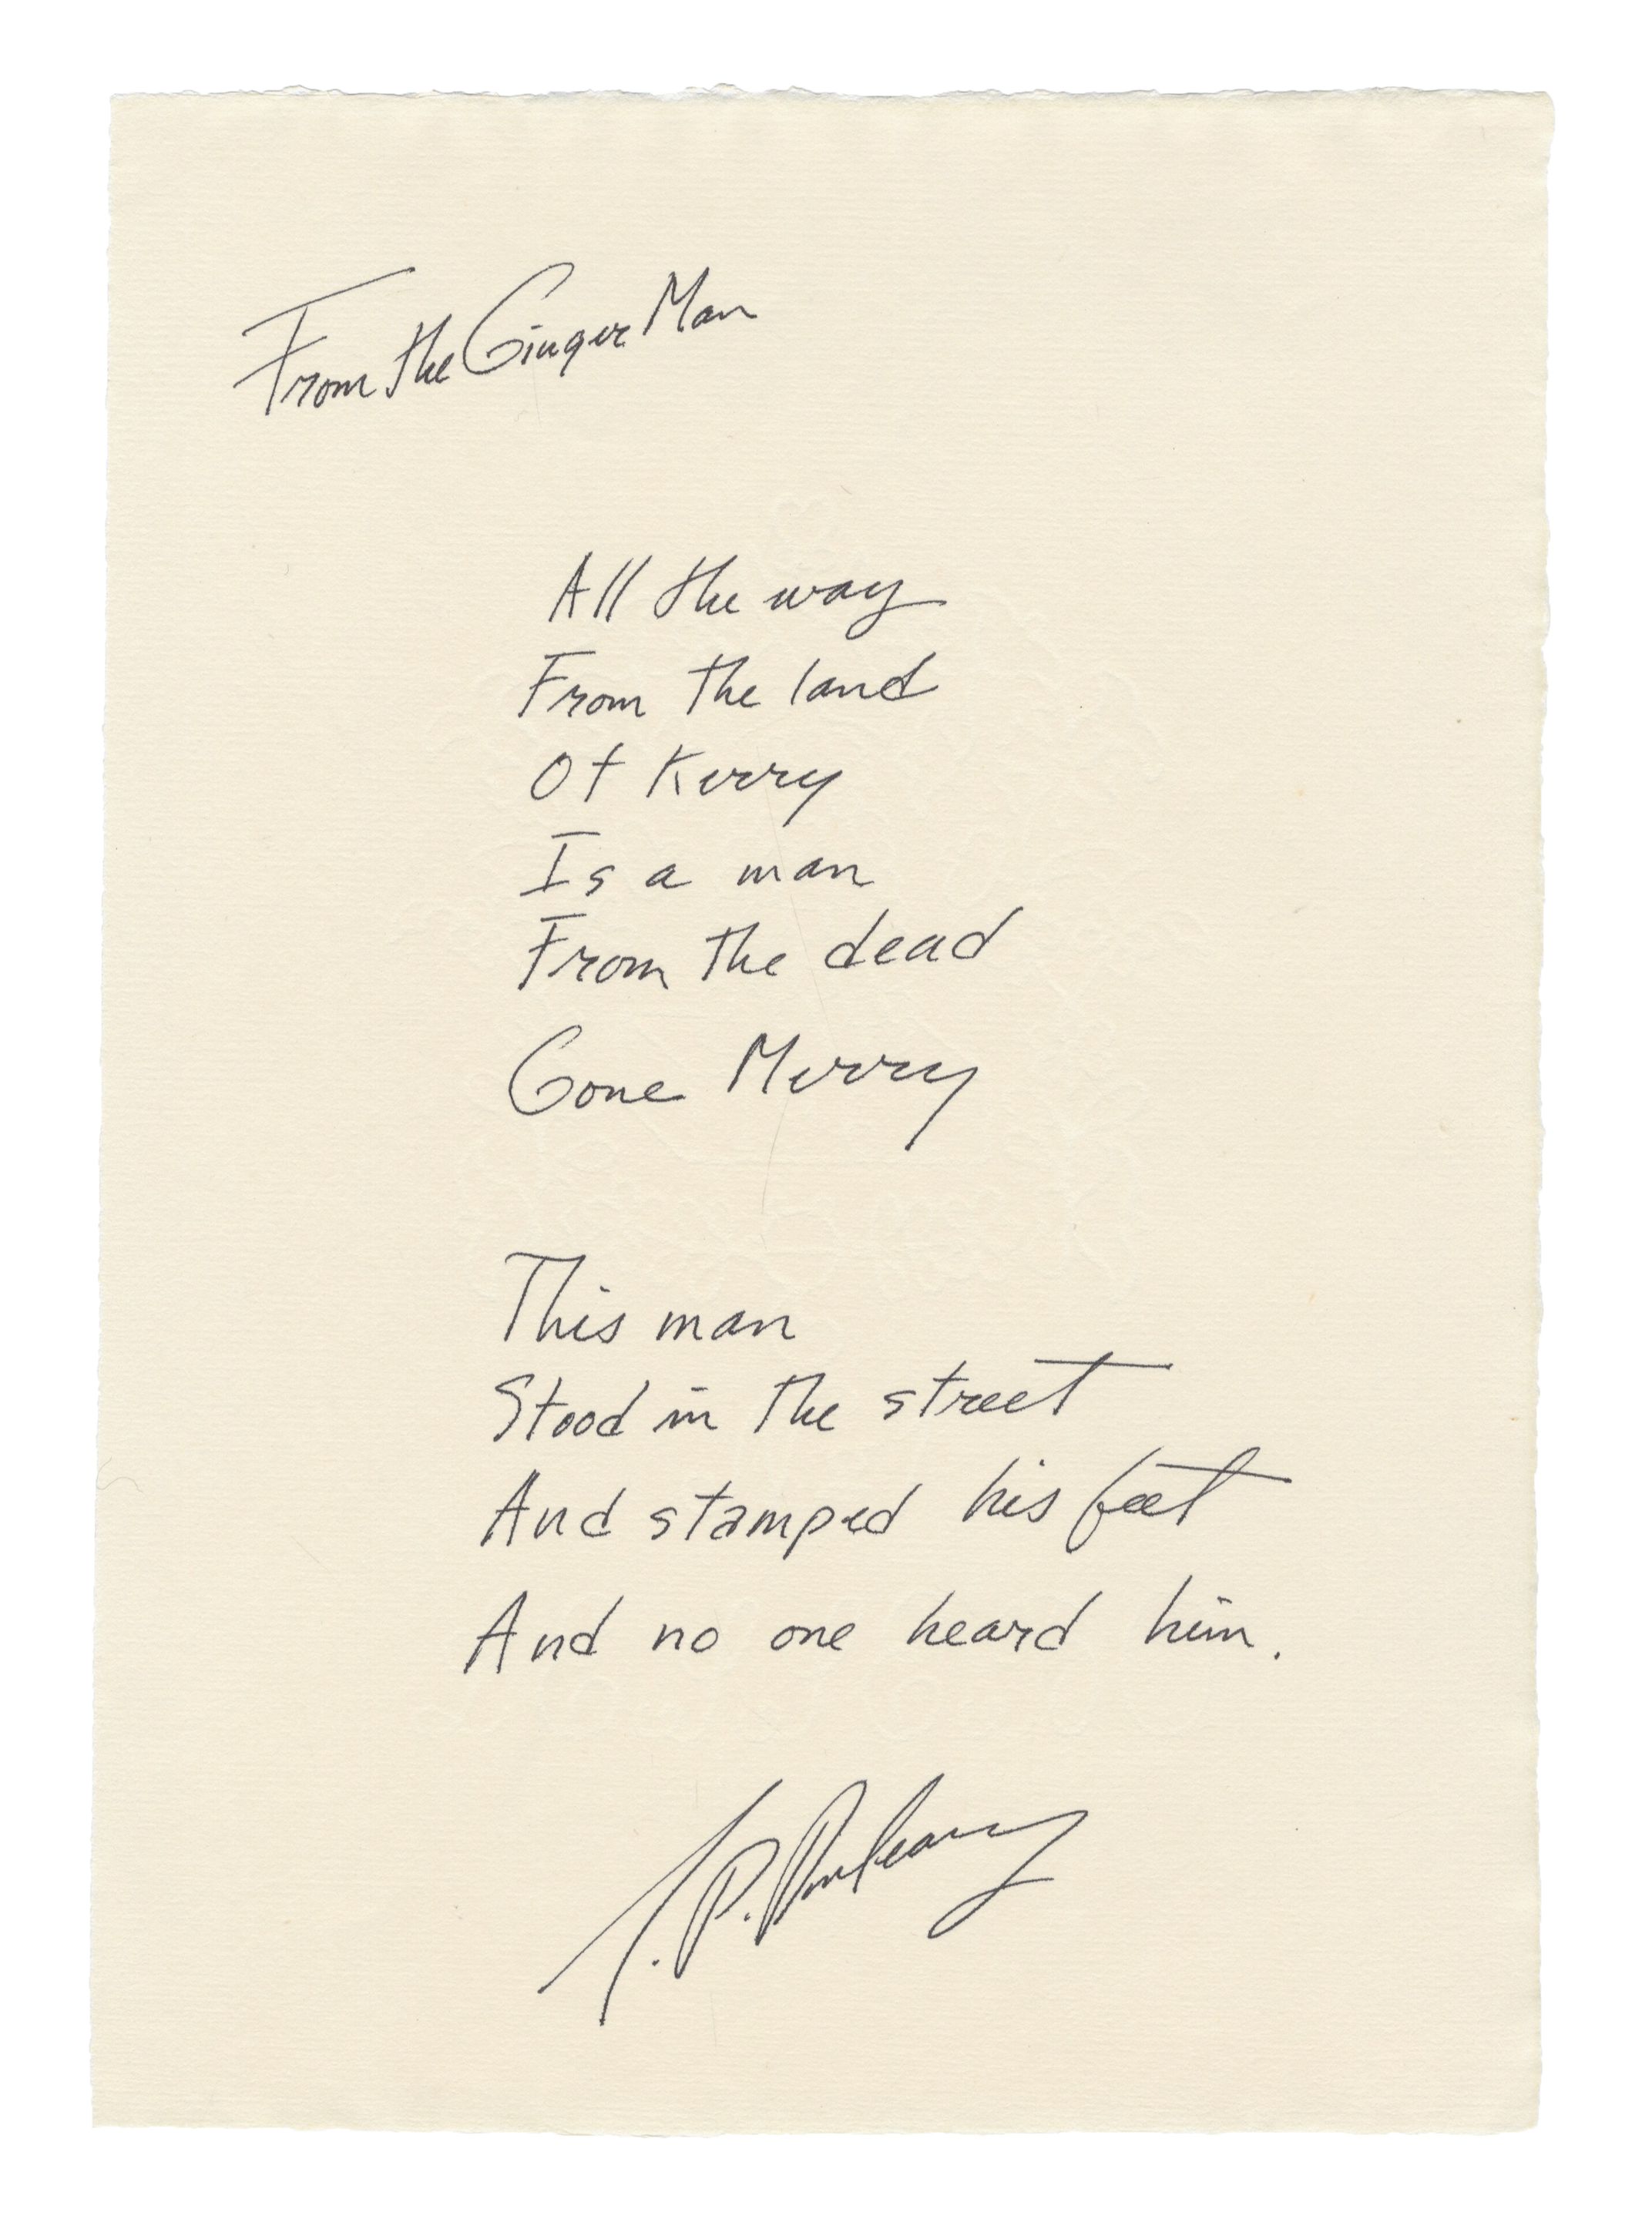 From the Ginger Man
All the way
From the land
Of Kerry
Is a man
From the dead
Gone Merry
This man
Stood in the street
And stamped his feet
And no one heard him.
J.P. Donleavy